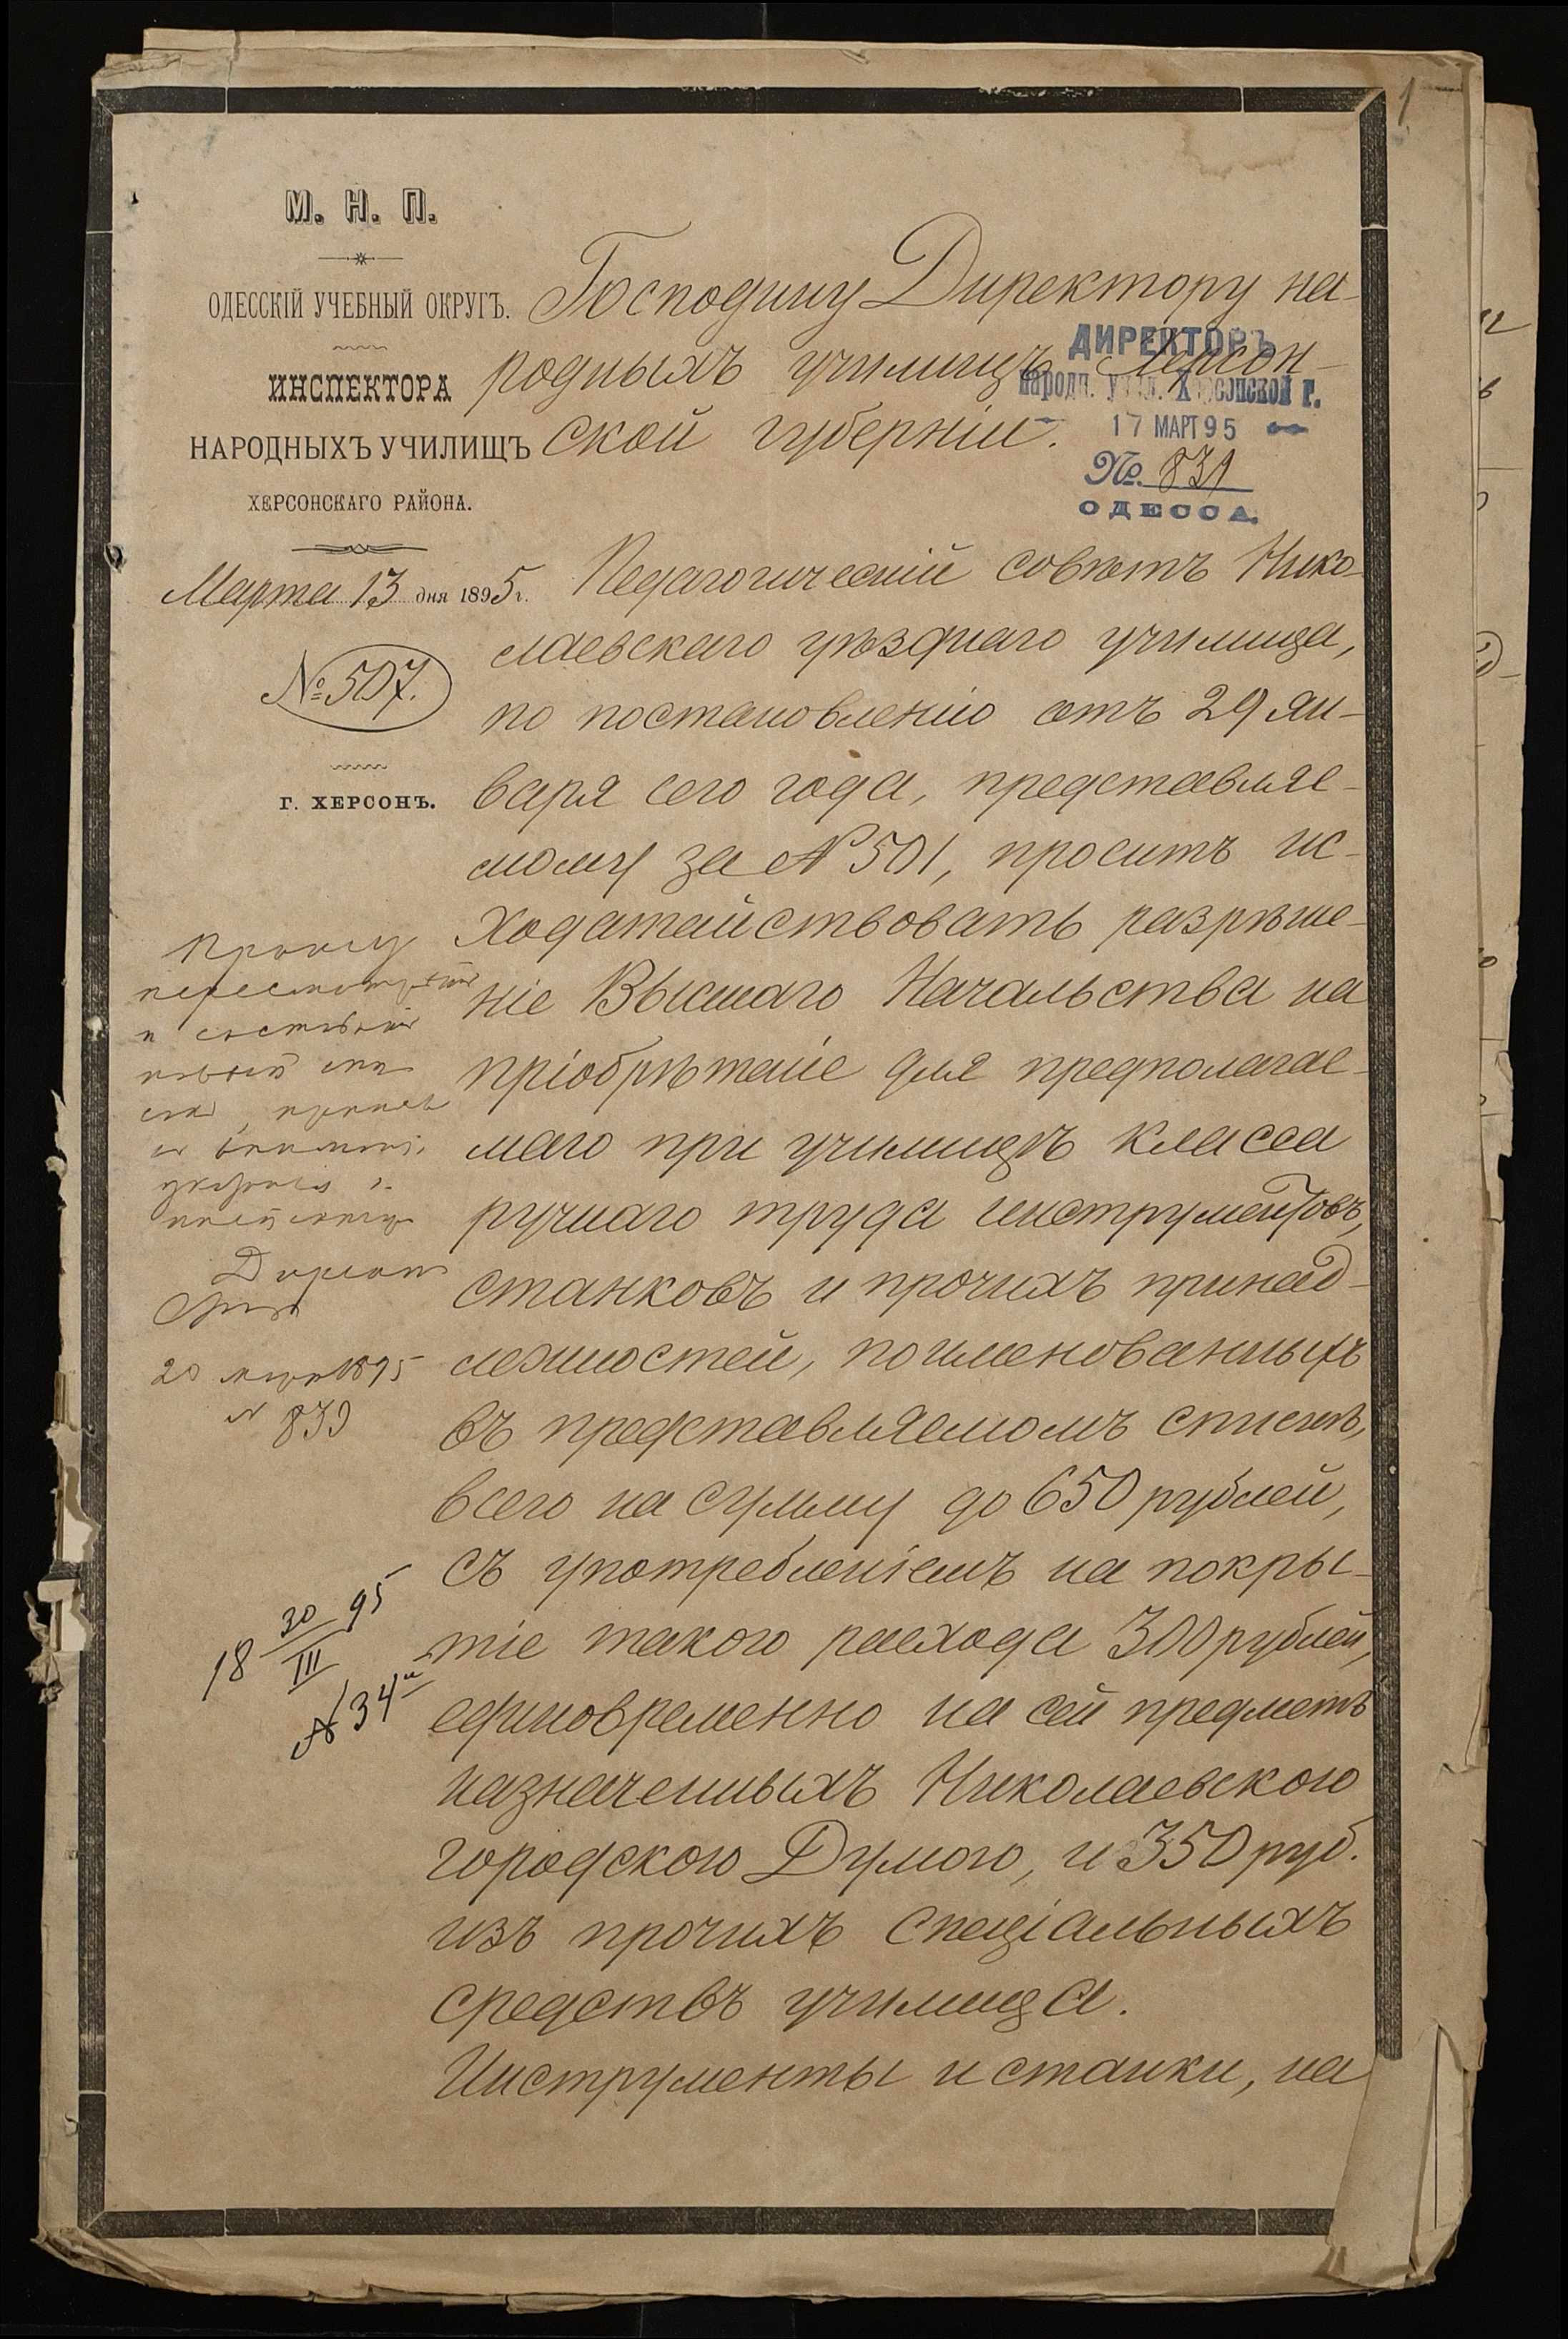 1
М. Н. П.
ОДЕССКІЙ УЧЕБНЫЙ ОКРУГЪ.
ИНСПЕКТОРА
НАРОДНЫХЪ УЧИЛИЩЪ
ХЕРСОНСКАГО РАЙОНА.
Марта 13 дня 1895 г.
№ 507.
Г. ХЕРСОНЪ.
Господину Директору на-
родныхъ училищъ Херсон-
ской губерніи.
ДИРЕКТОРЪ
народн. учил. Херсонской г.
17 МАРТ 95
№ 831
ОДЕССА.
Педагогическій совѣтъ Нико-
лаевскаго уѣзднаго училища,
по постановленію отъ 29 ян-
варя сего года, представляе-
мому за № 501, проситъ ис-
ходатайствовать разрѣше-
ніе Высшаго Начальства на
пріобрѣтеніе для предполагае-
маго при училищѣ класса
ручнаго труда инструментовъ,
станковъ и прочихъ принад-
лежностей, поименованныхъ
въ представляемомъ спискѣ,
всего на сумму до 650 рублей,
съ употребленіемъ на покры-
тіе такого расхода 300 рублей,
единовременно на сей предметъ
назначенныхъ Николаевскою
городскою Думою, и 350 руб.
изъ прочихъ спеціальныхъ
средствъ училища.
Инструменты и станки, на
Прошу
Директ
20 марта 1895
№ 839
18 30/III 95
№ 34